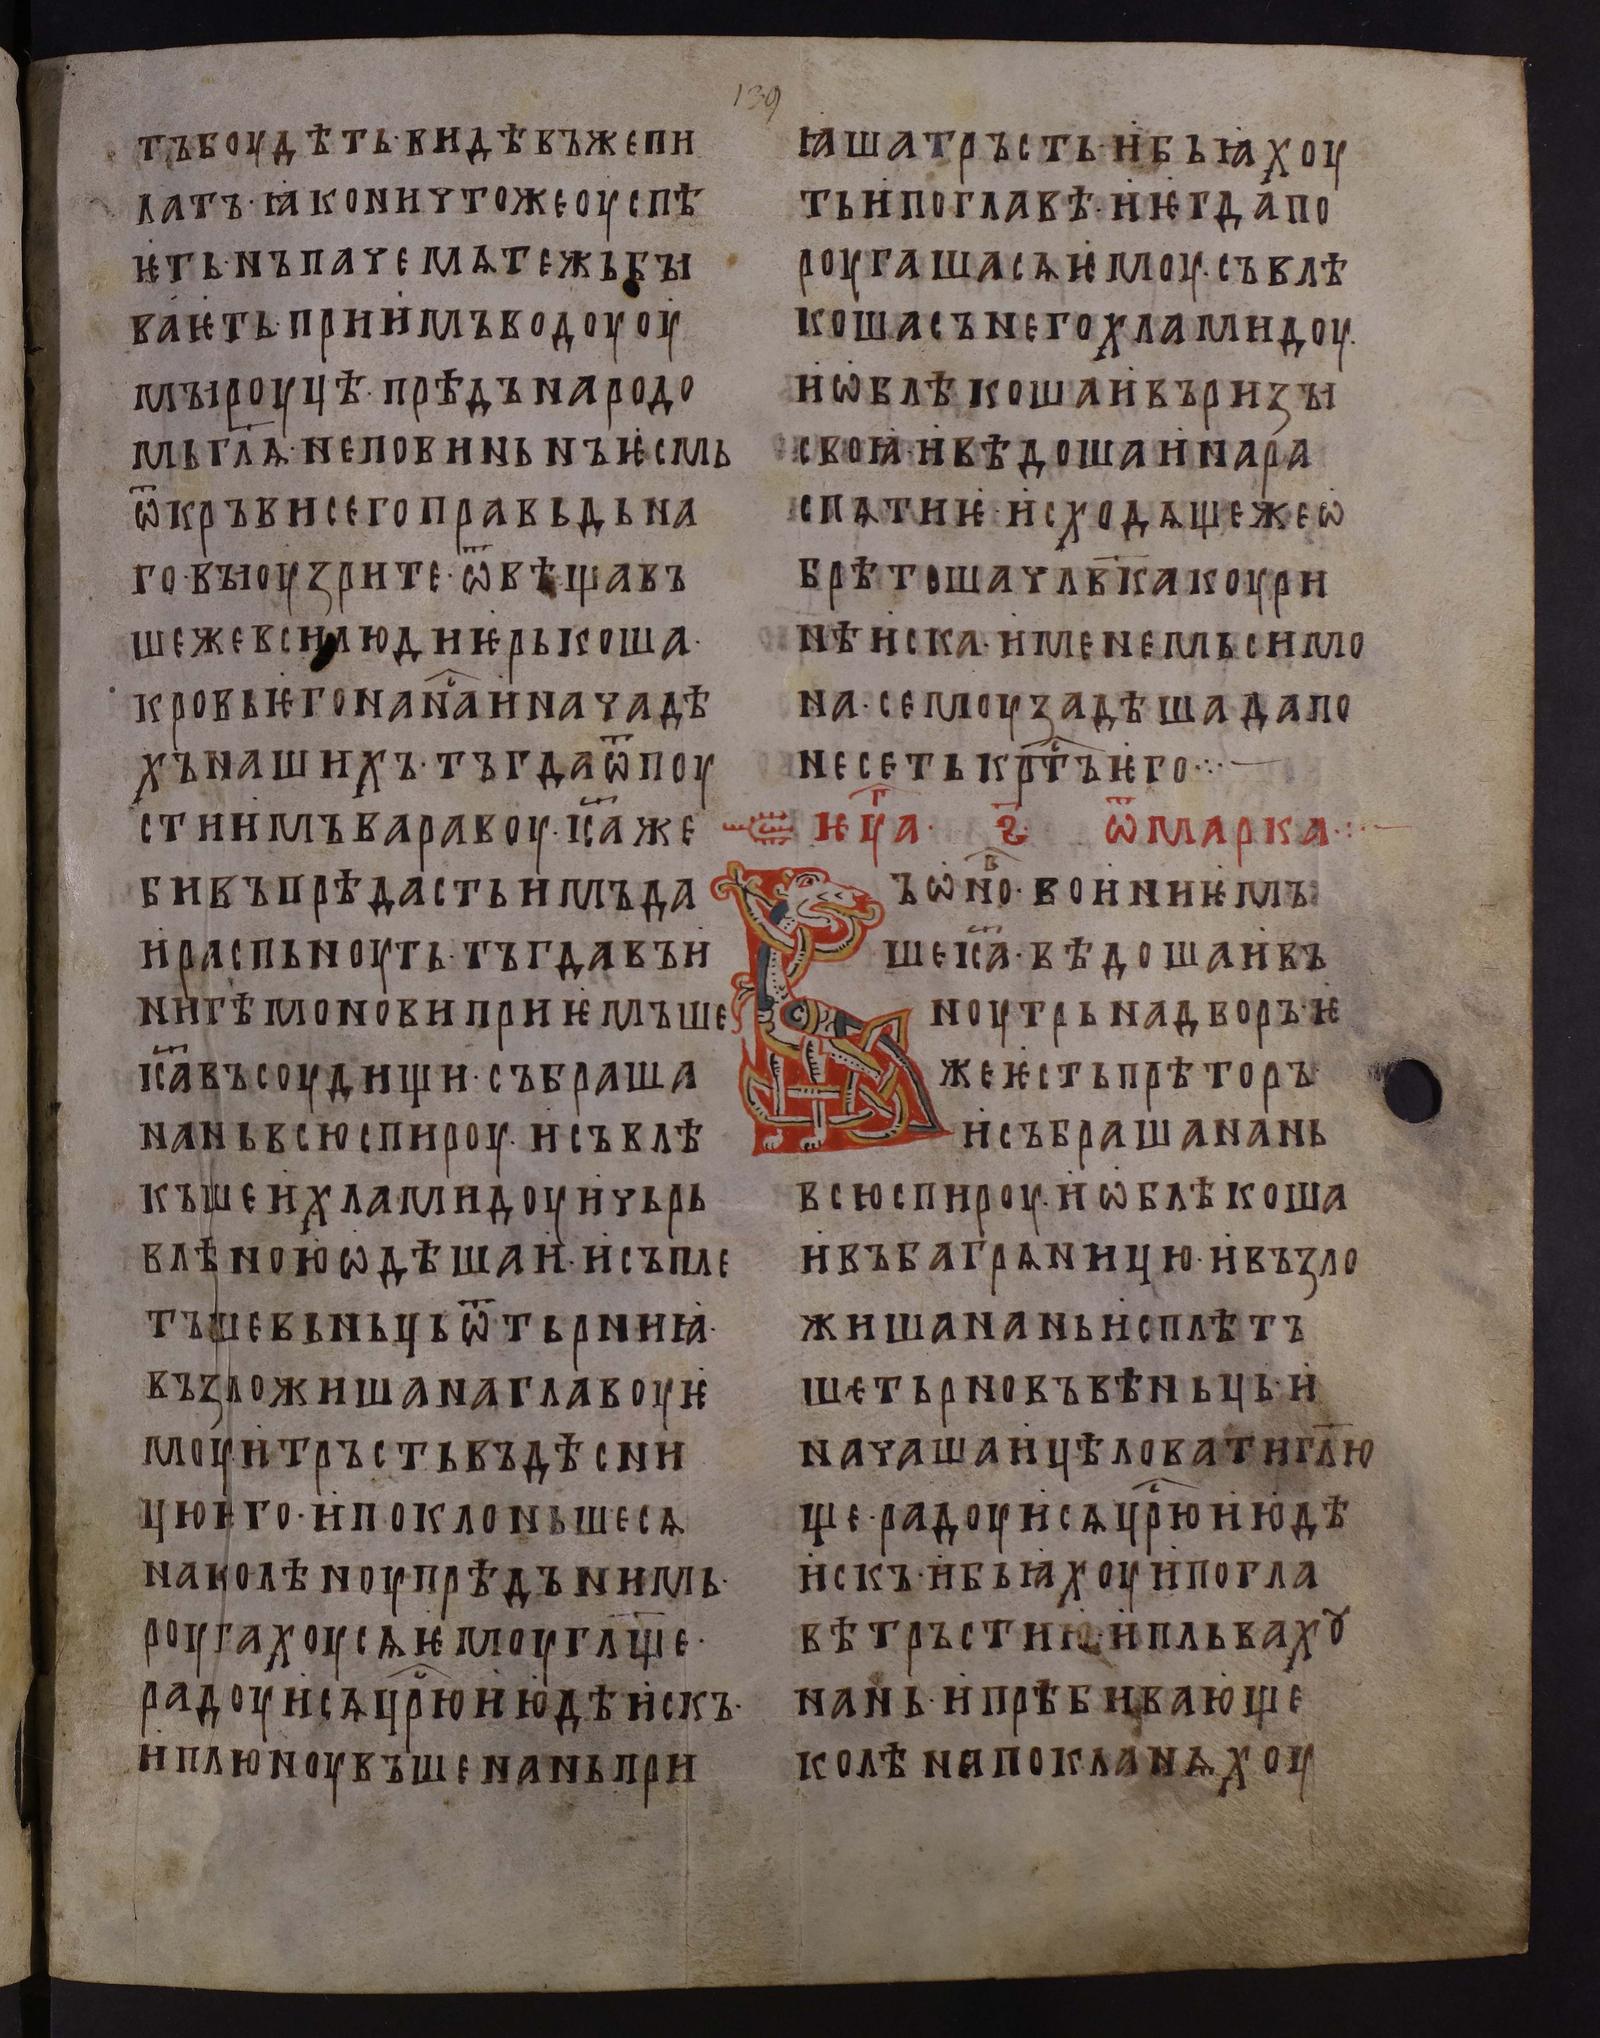 139
тъбоудѣть·видѣвъжепи
латъ·ꙗконичтожеоуспѣ
ѥть·нъпачемѧтежьбы
ваѥть·приимъводоуоу
мыроуцѣ·прѣдънародо
мьгл҃ѧ·неповиньнъѥсмь
ѿкръвисегоправьдьна
го·выоузрите·ѿвѣщавъ
шежевсилюдиѥрькоша·
кровьѥгонанⷭ҇аиначадѣ
хънашихъ·тъгдаѿпоу
стиимъваравоу·іс҃аже
бивъпрѣдастьимъда
ираспьноуть·тъгдавъи
ниигѣмоновиприѥмъше
іс҃авъсоудищи·събраша
наньвсюспироу·исъвлѣ
къшеихламидоуичьрь
влѣноюѡдѣшаи·исъпле
тъшевьньцьѿтьрниꙗ·
възложишанаглавоуѥ
моуитръстьвъдѣсни
цюѥго·ипоклоньшесѧ
наколѣноупрѣдънимь·
роугахоусѧѥмоугл҃ще·
радоуисѧцр҃юиюдѣискъ·
иплюноувъшенаньпри
ꙗшатръсть·ибьꙗхоу
тьипоглавѣ·иѥгдапо
роугашасѧѥмоу·съвлѣ
кошасънегохламидоу·
иѡблѣкошаивъризы
своꙗ·иведошаинара
спѧтиѥ·исходѧщежеѡ
брѣтошачлв҃какоури
нѣиска·именемьсимо
на·семоузадѣшадапо
несетькрⷭ҇тъѥго·:·—
ѥуⷢ҇а· г҃· ѿмарка·:·—
ъѡноⷡ·воиниѥмъ
шеіс҃а·вѣдошаивъ
ноутрьнадворъ·ѥ
жеѥстьпрѣторъ
исъбрашанань
всюспироу·иѡблѣкоша
ивъбагрѧницю·ивъзло
жишананьисплѣтъ
шетьрновъвѣньць·и
начашаицѣловатигл҃ю
ще·радоуисѧцр҃юиюдѣ
искъ·ибьꙗхоуипогла
вѣтръстию·ипльвахꙋ
нань·ипрѣбивающе
колѣнапокланѧхоу